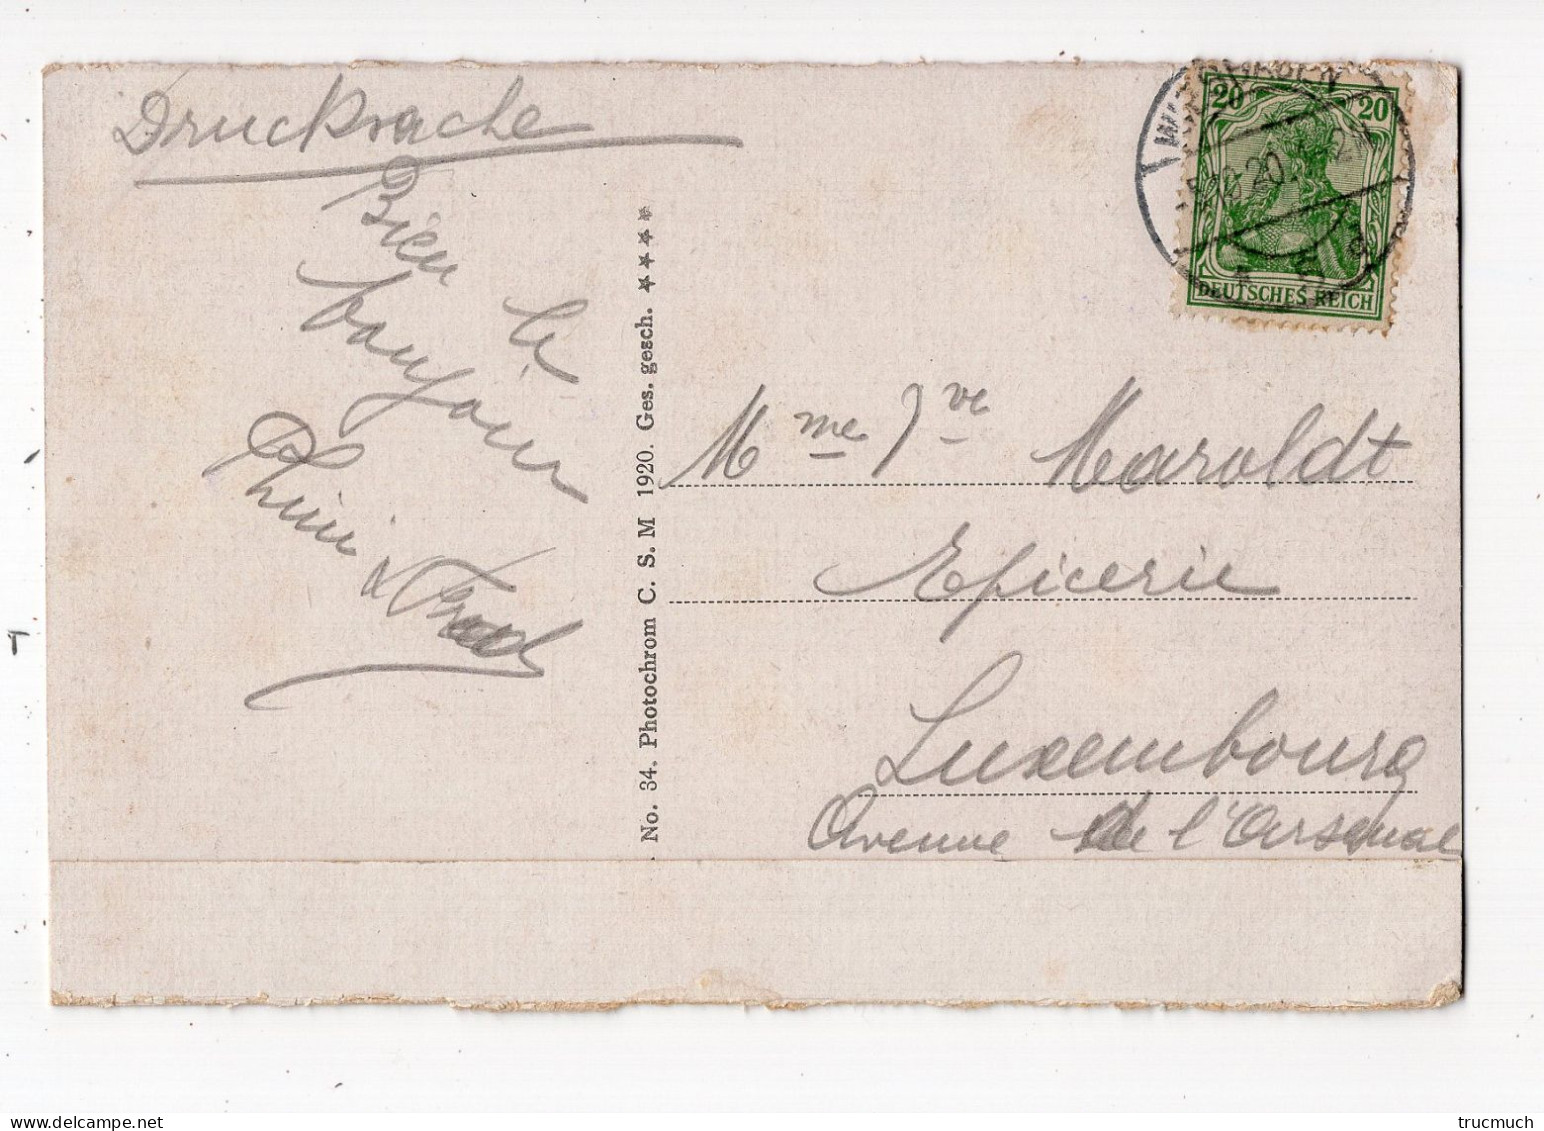 Drucksache
Bien
le
bonjour
&
No. 34. Photochrom C. S. M 1920. Ges. gesch. ★★★★
20 20
DEUTSCHES REICH
Mme Vve Maroldt
Epicerie
Luxembourg
Avenue de l'Arsenal
trucmuch